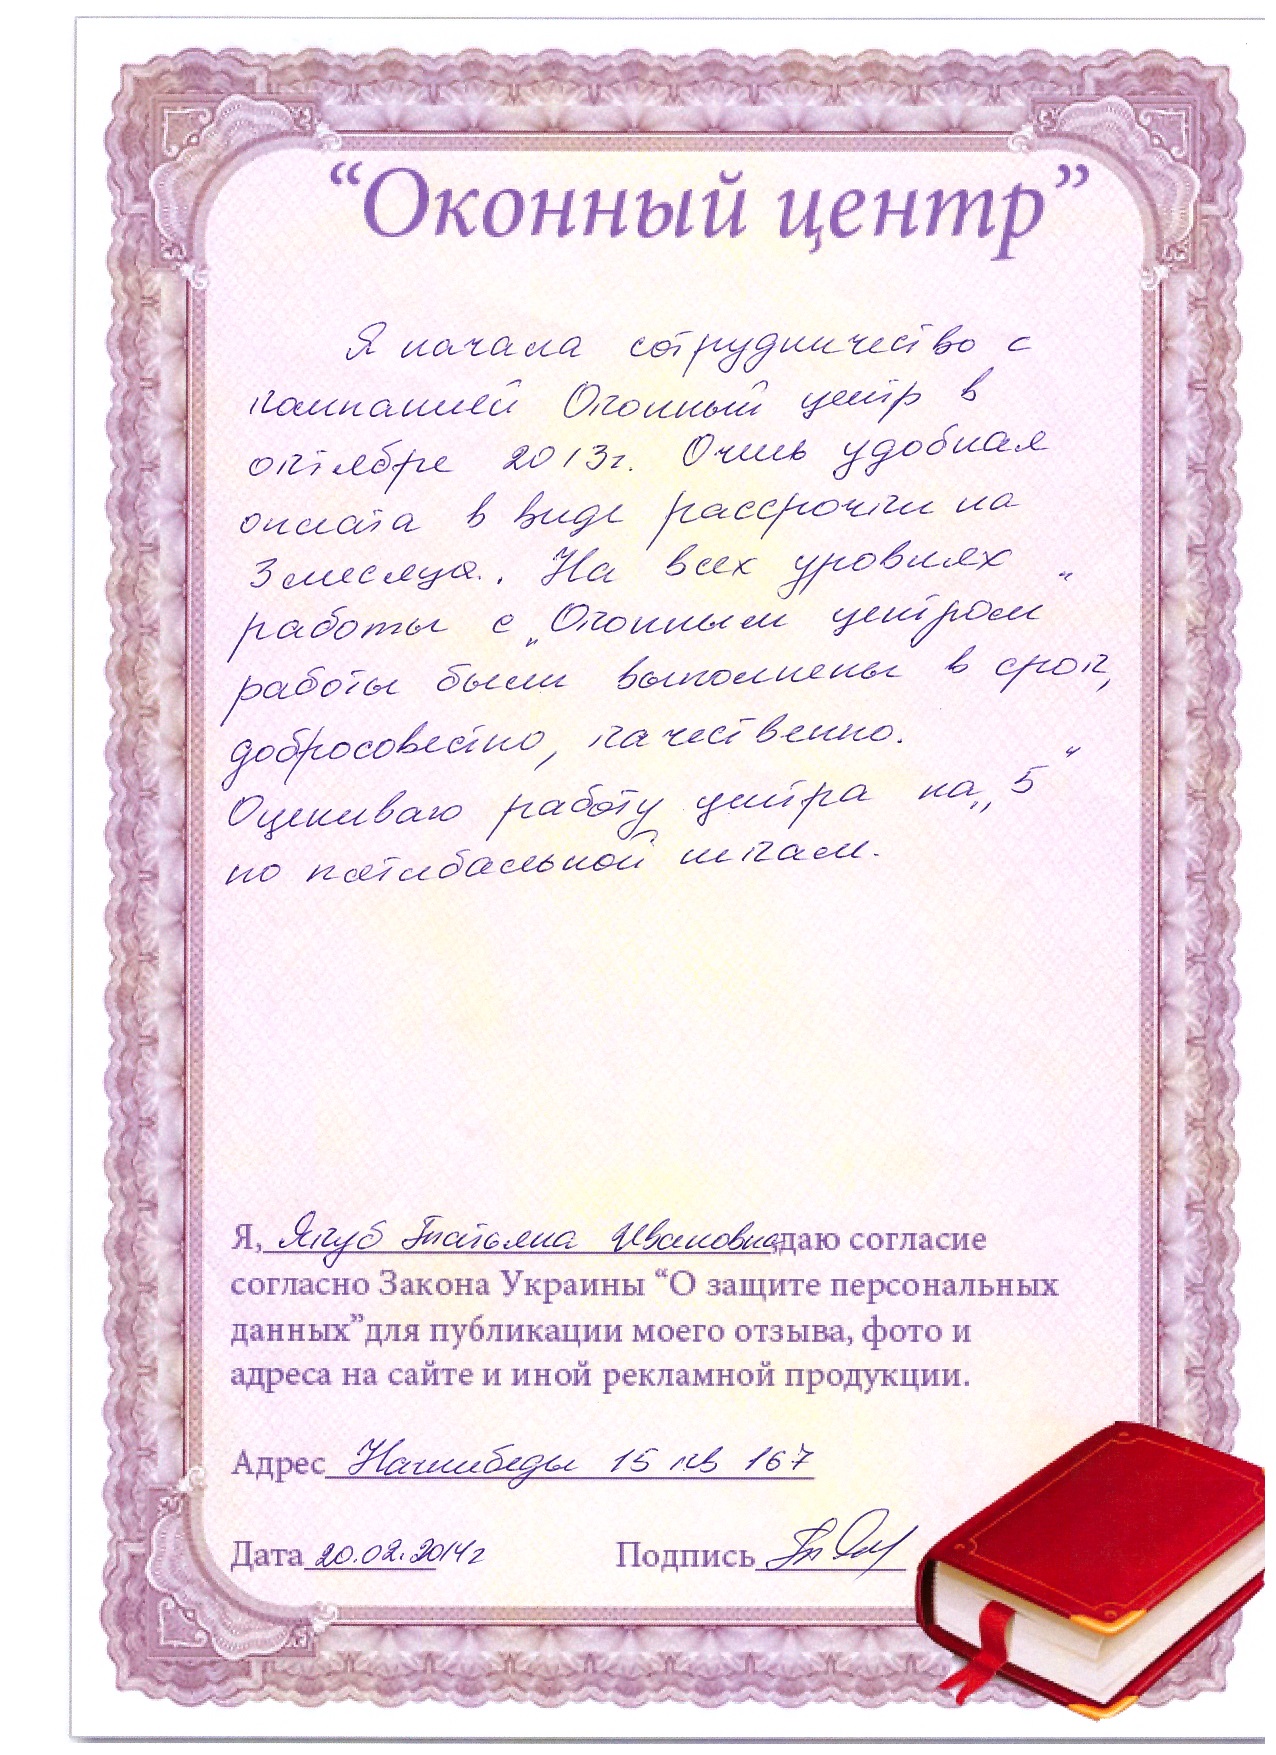 “Оконный центр”
Я начала сотрудничество с
компанией Оконный центр в
октябре 2013г. Очень удобная
оплата в виде рассрочки на
3 месяца. На всех уровнях
работы с „Оконным центром“
работы были выполнены в срок,
добросовестно, качественно.
Оцениваю работу центра на „5“
по пятибальной шкале.
Я, Якуб Татьяна Ивановна, даю согласие
согласно Закона Украины “О защите персональных
данных”для публикации моего отзыва, фото и
адреса на сайте и иной рекламной продукции.
Адрес 15 кв 167
Дата 20.02.2014г Подпись